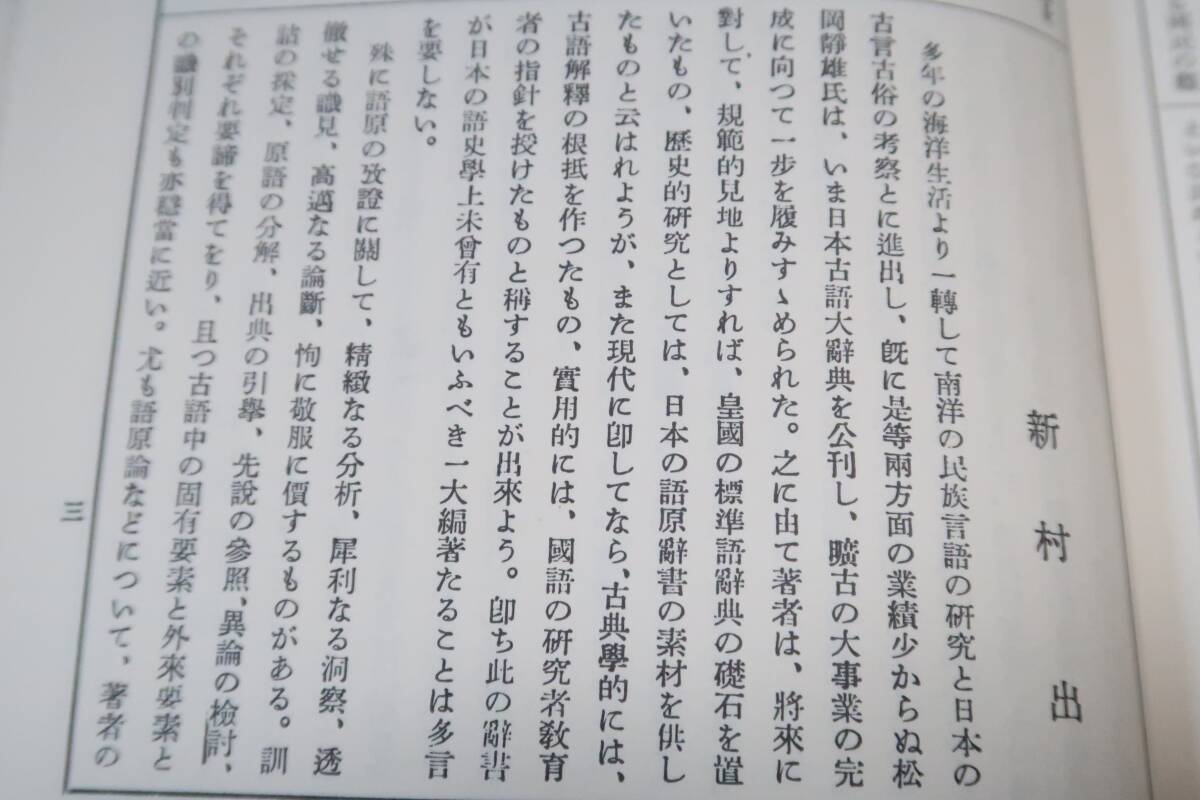 新村出
多年の海洋生活より一轉して南洋の民族言語の研究と日本の
古言古俗の考察とに進出し、旣に是等兩方面の業績少からぬ松
岡靜雄氏は、いま日本古語大辭典を公刊し、曠古の大事業の完
成に向つて一步を履みすゝめられた。之に由て著者は、將來に
對して、規範的見地よりすれば、皇國の標準語辭典の礎石を置
いたもの、歷史的硏究としては、日本の語原辭書の素材を供し
たものと云はれようが、また現代に卽してなら、古典學的には、
古語解釋の根抵を作つたもの、實用的には、國語の硏究者敎育
者の指針を授けたものと稱することが出來よう。卽ち此の辭書
が日本の語史學上未曾有ともいふべき一大編著たることは多言
を要しない。
殊に語原の攷證に關して、精緻なる分析、犀利なる洞察、透
徹せる識見、高邁なる論斷、恂に敬服に價するものがある。訓
詁の採定、原語の分解、出典の引擧、先說の參照、異論の檢討、
それぞれ要諦を得てをり、且つ古語中の固有要素と外來要素と
の識別判定も亦穩當に近い。尤も語原論などについて、著者の
三